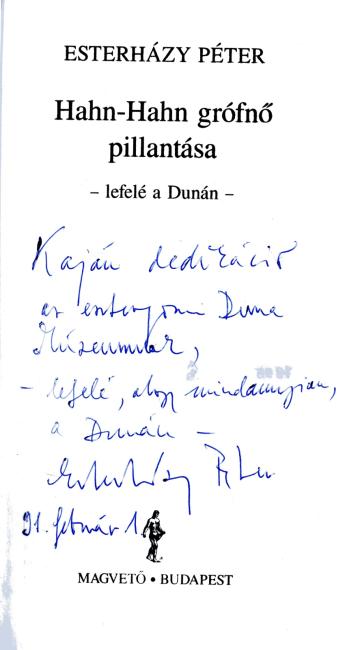 ESTERHÁZY PÉTER
Hahn-Hahn grófnő
pillantása
– lefelé a Dunán –
Kaján dedikáció
az esztergomi Duna
Múzeumnak,
– lefelé, ahogy mindannyian,
a Dunán –
Esterházy Péter
91. február 1.
MAGVETŐ • BUDAPEST